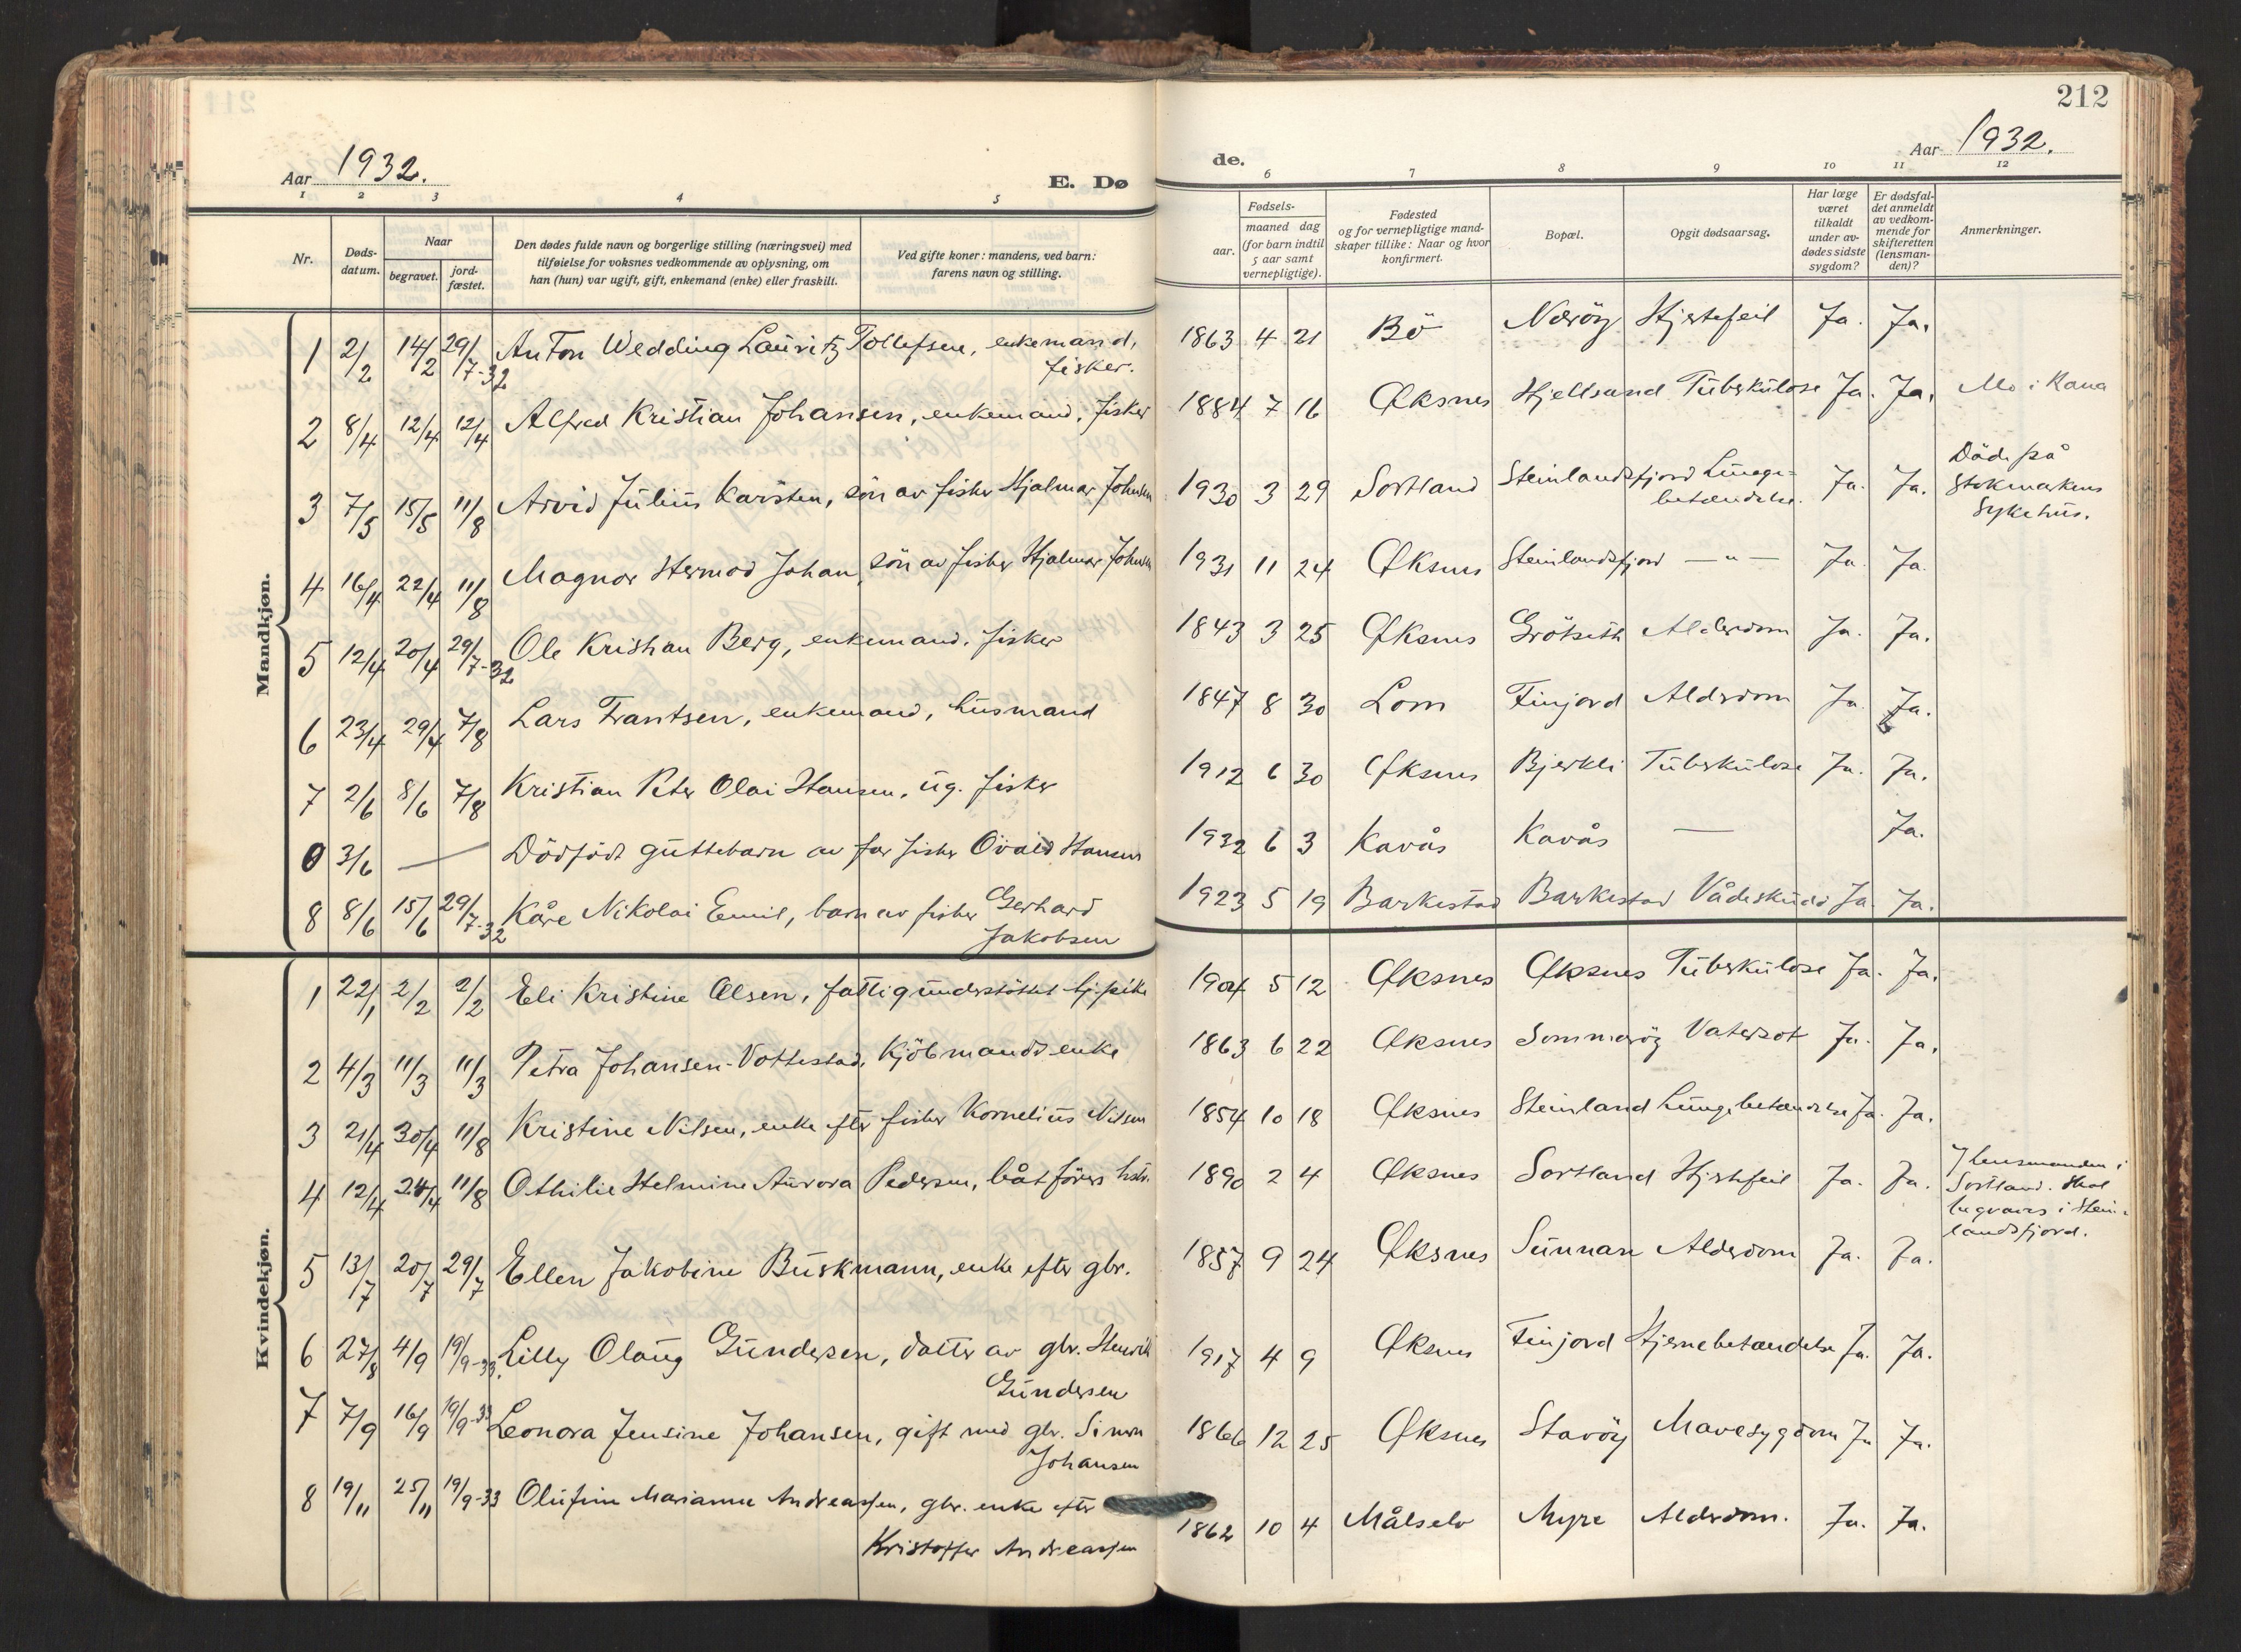 212
Aar 1932.
E. Dø
de.
Aar 1932.
1 2 3 4 5
6 7 8 9 10 11 12
Nr.
Døds-
datum.
Naar
begravet.
jord-
fæstet.
Den dødes fulde navn og borgerlige stilling (næringsvei) med
tilføielse for voksnes vedkommende av oplysning, om
han (hun) var ugift, gift, enkemand (enke) eller fraskilt.
Ved gifte koner: mandens, ved barn:
farens navn og stilling.
Fødsels-
aar.
maaned dag
(for barn indtil
5 aar samt
vernepligtige).
Fødested
og for vernepligtige mand-
skaper tillike: Naar og hvor
konfirmert.
Bopæl.
Opgit dødsaarsag.
Har læge
været
tilkaldt
under av-
dødes sidste
sygdom?
Er dødsfal-
det anmeldt
av vedkom-
mende for
skifteretten
(lensman-
den)?
Anmerkninger.
Mandkjøn.
1 2/2 14/2 29/7-32 Anton Wedding Lauritz Tollefsen, enkemand, 1863 4 21 Bö Neröy Hjertefeil Ja. Ja.
fisker.
2 8/4 12/4 12/4 Alfred Kristian Johansen, enkemand, fisker 1884 7 16 Öksnes Hjellsand Tüberkülose Ja. Ja. Mo i Rana
3 7/5 15/5 11/8 Arvid Jülius Karsten, sön av fisker Hjalmar Johnsen 1930 3 29 Sortland Steinlandsfjord Lunge-
betændelse. Ja. Ja. Döde på
Stokmarknes
Sykehüs.
4 16/4 22/4 11/8 Magnor Hermod Johan, sön av fisker Hjalmar Johnsen 1931 11 24 Öksnes Steinlandsfjord — " — Ja. Ja.
5 12/4 20/4 29/7-32 Ole Kristian Berg, enkemand. fisker 1843 3 25 Öksnes Grötseth Alderdom Ja. Ja.
6 23/4 29/4 7/8 Lars Frantsen, enkemand, hüsmand 1847 8 30 Lom Finjord Alderdom Ja. Ja.
7 2/6 8/6 7/8 Kristian Peter Olai Hansen, üg. fisker 1912 6 30 Öksnes Bjerkli Tüberkülose Ja. Ja.
0 3/6 — Dödfödt güttebarn av far fisker Ovald Hansen 1932 6 3 Kavås Kavås — Ja.
8 8/6 15/6 29/7-32 Kåre Nikolai Emil, barn av fisker Gerhard 1923 5 19 Barkestad Barkestad Vådesküdd Ja. Ja.
Jakobsen
Kvindekjøn.
1 22/1 2/2 2/2 Eli Kristine Olsen, fattigünderstöttet tj.pike 1904 5 12 Öksnes Öksnes Tüberkülose Ja. Ja.
2 4/3 11/3 11/3 Petra Johansen-Vottestad, Kjöbmands enke 1863 6 22 Öksnes Sommeröy Vatersot Ja. Ja.
3 21/4 30/4 11/8 Kristine Nilsen, enke efter fisker Kornelius Nilsen 1854 10 18 Öksnes Steinland Lüngebetændelse Ja. Ja.
4 12/4 24/4 11/8 Othilie Helmine Aürora Pedersen, båtförers hstr. 1890 2 4 Öksnes Sortland Hjertefeil Ja. Ja. lensmanden i
Sortland. Skal
begraves i Stein-
landsfjord.
5 13/7 20/7 29/7 Ellen Jakobine Büskmann, enke efter gbr. 1857 9 24 Öksnes Sünnan Alderdom Ja. Ja.
6 27/8 4/9 19/9-33. Lilly Olaüg Gündersen, datter av gbr. Henrik 1917 4 9 Öksnes Finjord Hjernebetændelse Ja. Ja.
Gündersen
7 7/9 16/9 19/9-33 Leonora Jensine Johansen, gift med gbr. Simon 1866 12 25 Öksnes Stavöy Mavesygdom Ja Ja.
Johansen
8 19/11 25/11 19/9-33 Olüfine Marianne Andreassen, gbr. enke efter 1862 10 4 Målselv Myre Alderdom. Ja. Ja.
Kristoffer Andreassen